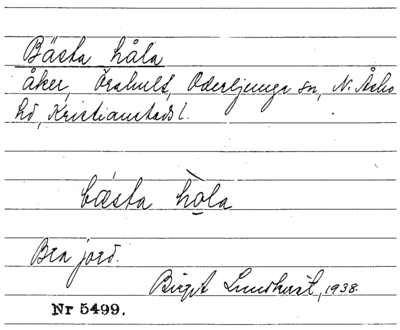 Bästa håla
åker, Örahult, Oderljunga sn, N. Åsbo
hd, Kristianstads l.
bæ̀sta hò̱la
Bra jord.
Birgit Lundkvist, 1938.
Nr 5499.